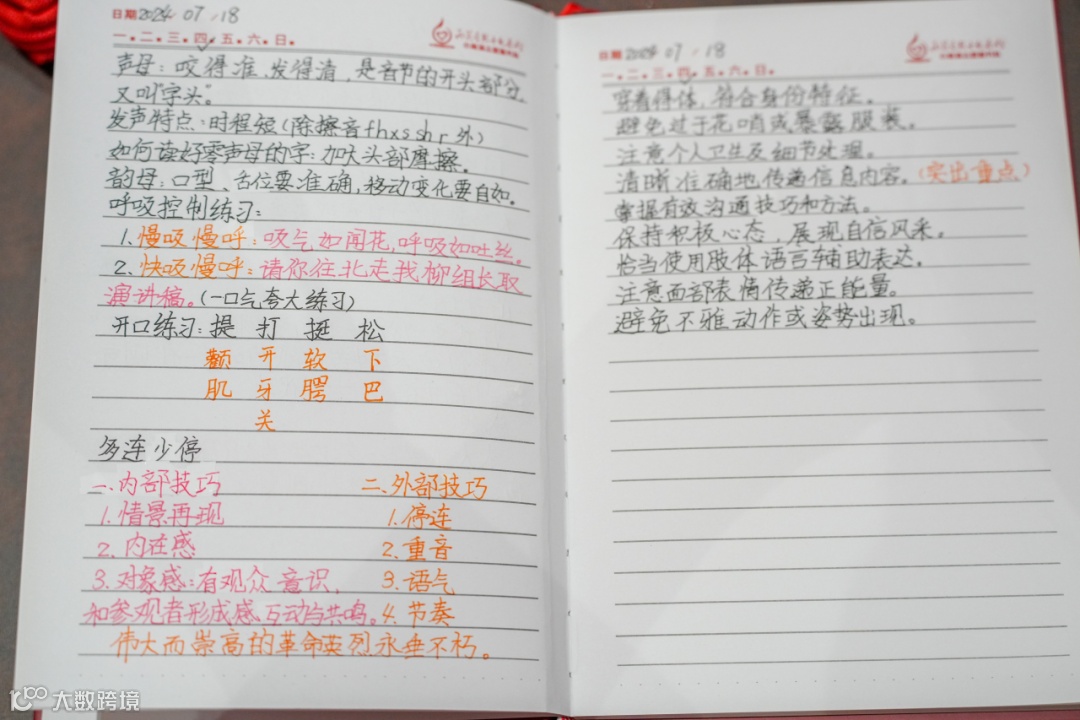 日期2024 07 .18
一.二.三.四.五.六.日.
声母：咬得准，发得清，是音节的开头部分，
又叫"字头"。
发声特点：时程短（除擦音fhxsshr外）
如何读好零声母的字：加大头部摩擦。
韵母：口型、舌位要准确，移动变化要自如。
呼吸控制练习：
1.慢吸慢呼：吸气如闻花，呼吸如吐丝。
2.快吸慢呼：请你往北走找柳组长取
演讲稿。（一口气夸大练习）
开口练习：提 打 挺 松
颧 开 软 下
肌 牙 腭 巴
关
多连少停
一、内部技巧 二、外部技巧
1.情景再现 1.停连
2.内在感 2.重音
3.对象感：有观众意识， 3.语气
和参观者形成感互动与共鸣。4.节奏
伟大而崇高的革命英烈永垂不朽。
日期2024 07 .18
一.二.三.四.五.六.日.
穿着得体，符合身份特征。
避免过于花哨或暴露服装。
注意个人卫生及细节处理。
清晰准确地传递信息内容。（突出重点）
掌握有效沟通技巧和方法。
保持积极心态，展现自信风采。
恰当使用肢体语言辅助表达。
注意面部表情传递正能量。
避免不雅动作或姿势出现。
大数跨境